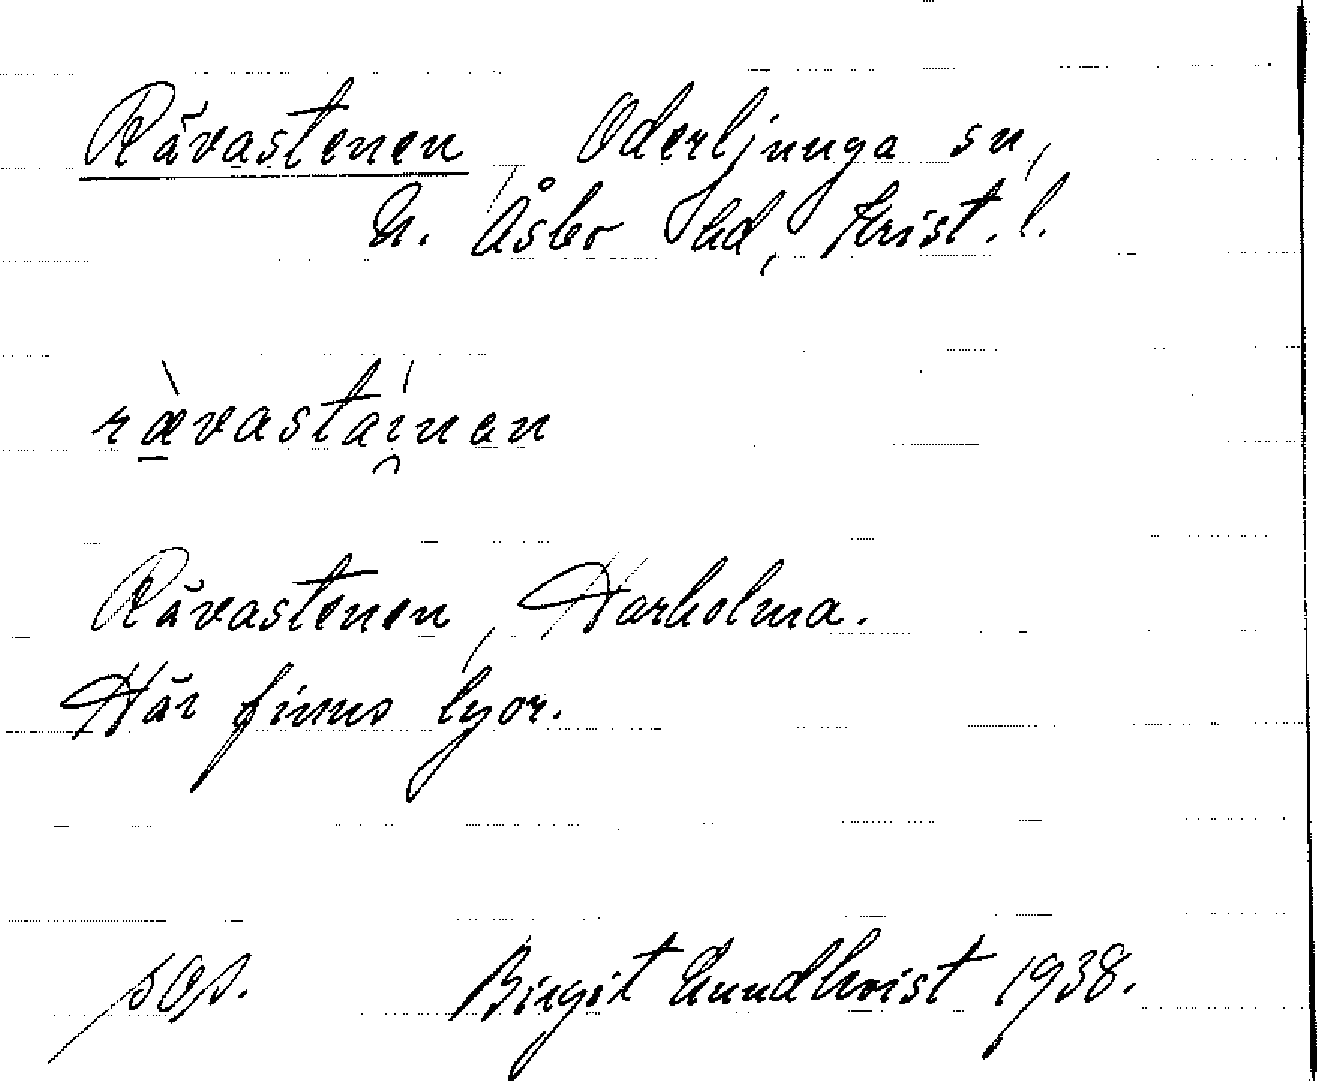 Rävastenen, Oderljunga sn,
N. Åsbo hd, Krist. l.
rævastainan
Rävastenen, Harholma.
Här finns lyor.
Birgit Lundkvist 1938.